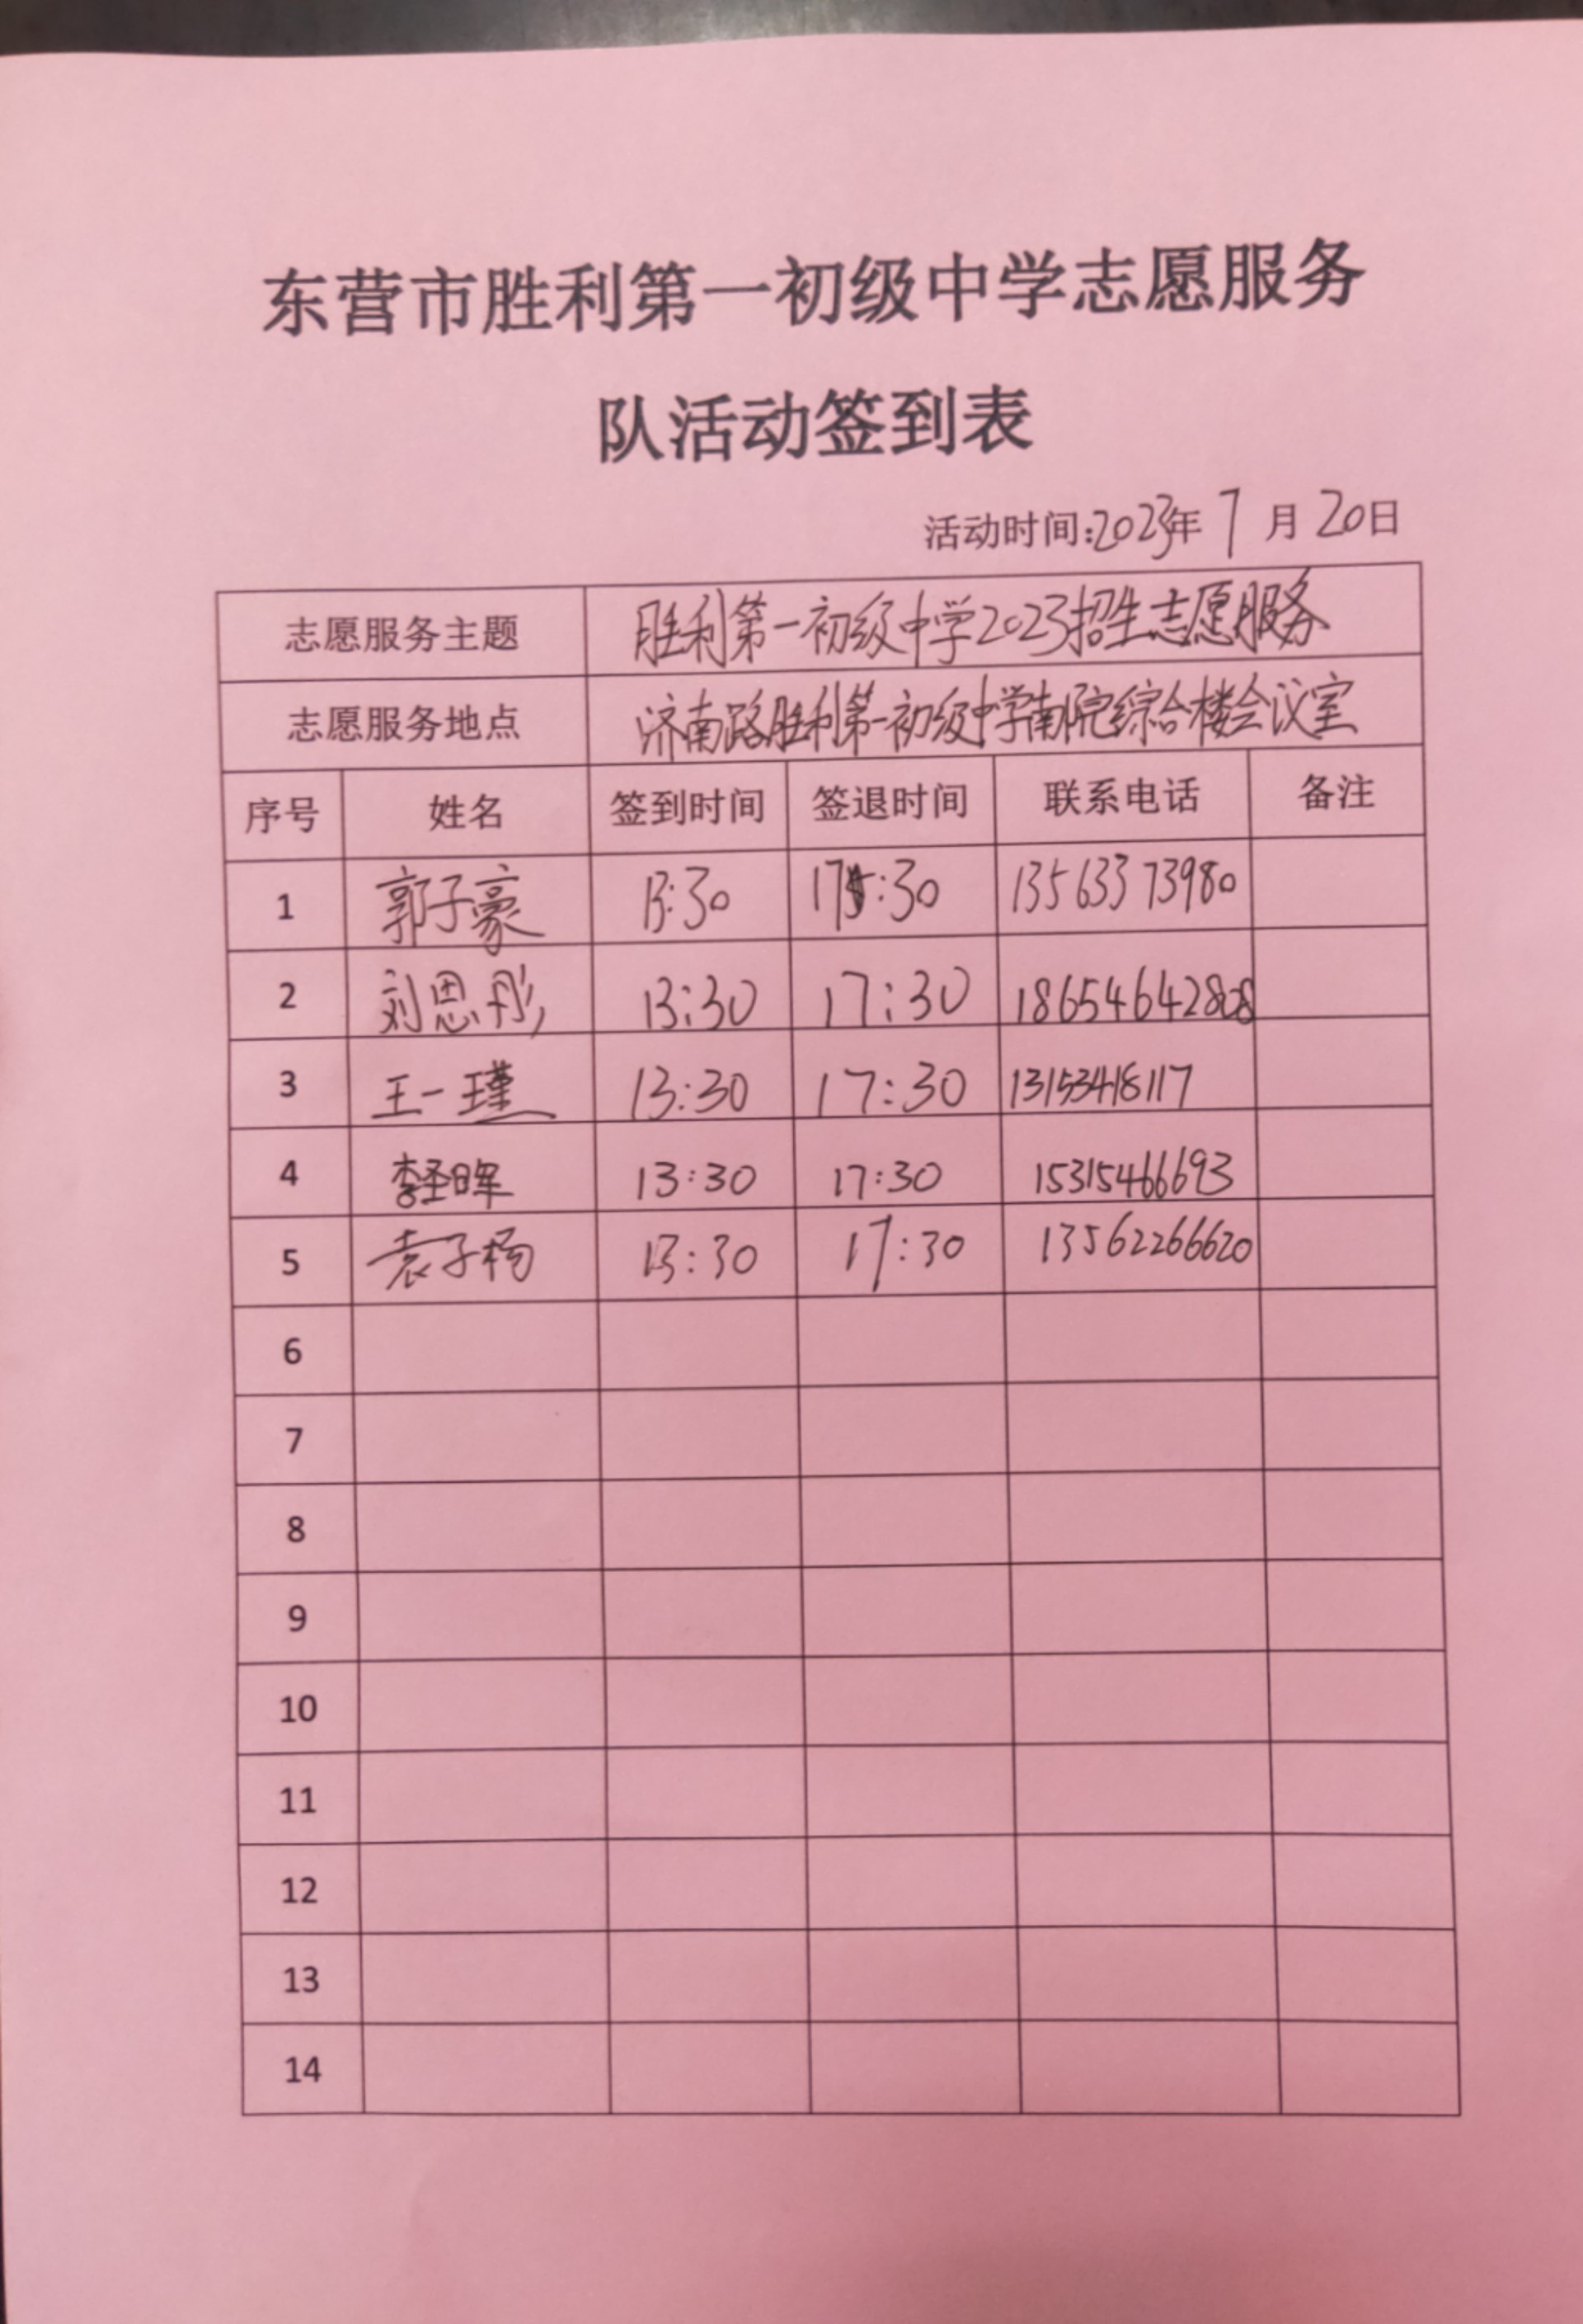 东营市胜利第一初级中学志愿服务
队活动签到表
活动时间:2023年 7 月 20日
志愿服务主题 胜利第一初级中学2023招生志愿服务
志愿服务地点 济南路胜利第一初级中学南院综合楼会议室
序号 姓名 签到时间 签退时间 联系电话 备注
1 郭子豪 13:30 17:30 13563373980
2 刘思彤 13:30 17:30 18654642808
3 王一瑾 13:30 17:30 13153418117
4 李圣晖 13:30 17:30 15315466693
5 袁子杨 13:30 17:30 13562266620
6
7
8
9
10
11
12
13
14